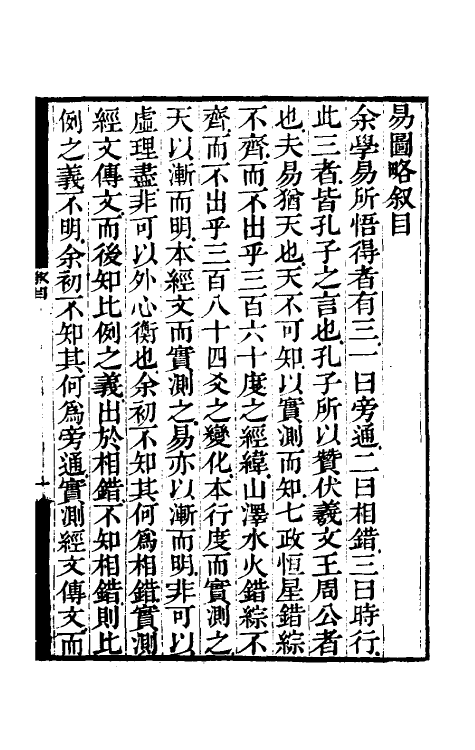 易圖略叙目
余學易所悟得者有三一曰旁通二曰相錯三曰時行
此三者皆孔子之言也孔子所以贊伏羲文王周公者
也夫易猶天也天不可知以實測而知七政恒星錯綜
不齊而不出乎三百六十度之經緯山澤水火錯綜不
齊而不出乎三百八十四爻之變化本行度而實測之
天以漸而明本經文而實測之易亦以漸而明非可以
虛理盡非可以外心衡也余初不知其何爲相錯實測
經文傳文而後知比例之義出於相錯不知相錯則比
例之義不明余初不知其何爲旁通實測經文傳文而
叙目